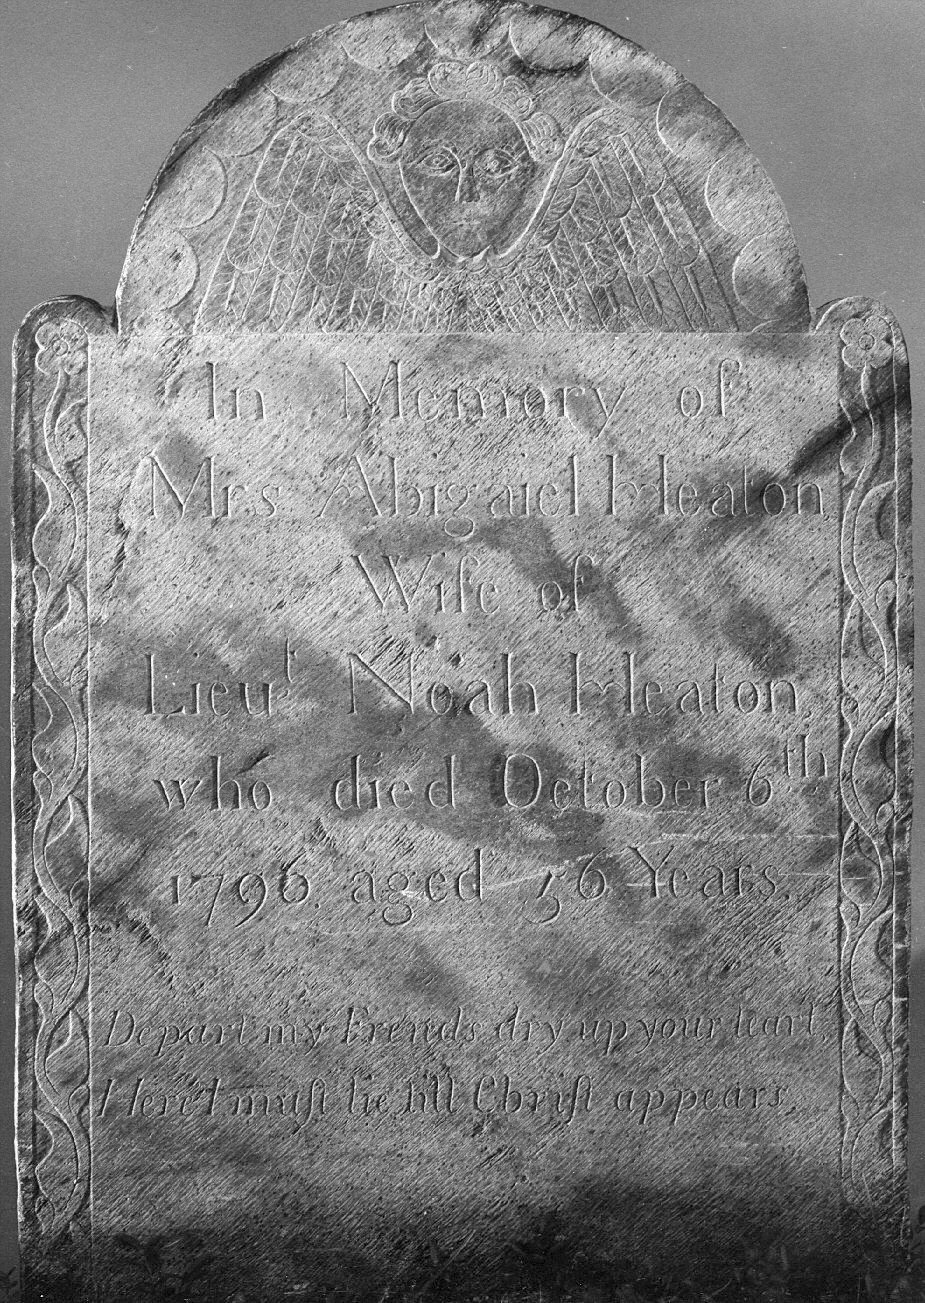 In Memory of
Mrs Abigaiel Heaton
Wife of
Lieuᵗ Noah Heaton
who died October 6ᵗʰ
1796. aged 56 Years.
Depart my Freinds dry up your tears
Here I muſt lie till Chriſt appears.